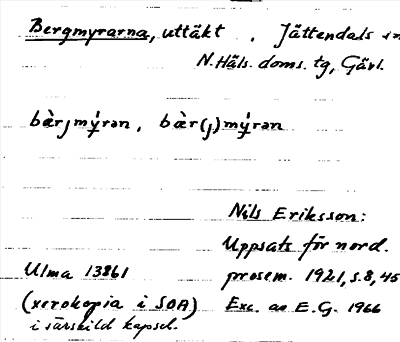 Bergmyrarna, uttäkt . Jättendals sn
N. Häls. doms. tg, Gävl.
bæ̀rjmýrən, bæ̀r(j)mýrən
Nils Eriksson:
Uppsats för nord.
Ulma 13861 prosem. 1921, s. 8, 45
(xerokopia i SOA) Exc. av E.G. 1966
i särskild kapsel.